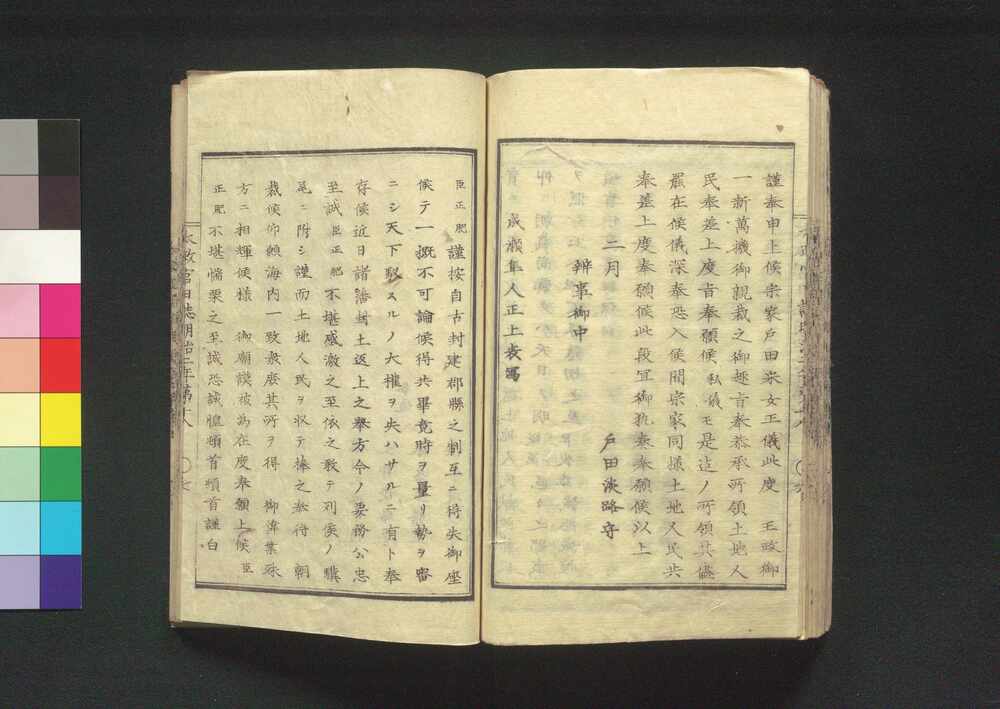 謹奉申上候宗家戸田采女正儀此度　王政御
一新萬機御親裁之御趣旨奉恭承所領土地人
民奉差上度旨奉願候私儀モ是迄ノ所領其儘
罷在候儀深奉恐入候間宗家同様土地人民共
奉差上度奉願候此段宜御執奏奉願候以上
二月　戸田淡路守
辨事御中
成瀬隼人正上表写
臣正肥謹按自古封建郡縣之制互ニ得失御座
候テ一概不可論候得共畢竟時ヲ量リ勢ヲ審
ニシ天下馭スルノ大權ヲ失ハサルニ有ト奉
存候近日諸藩封土返上之擧方今ノ要務公忠
至誠臣正肥不堪感激之至依之敢テ列侯ノ驥
尾ニ附シ謹而土地人民ヲ収テ捧之恭待　朝
裁候仰願海内一致衆庶其所ヲ得　御偉業殊
方ニ相輝候様　御廟謨被為在度奉願上候臣
正肥不堪惴栗之至誠恐誠惶頓首頓首謹白
太政官日誌明治二年第十八　〇七